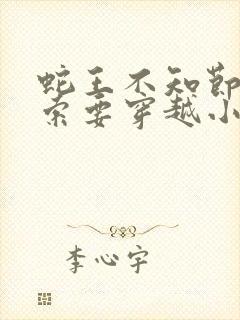 蛇王不知节
索要穿越小
李心宇